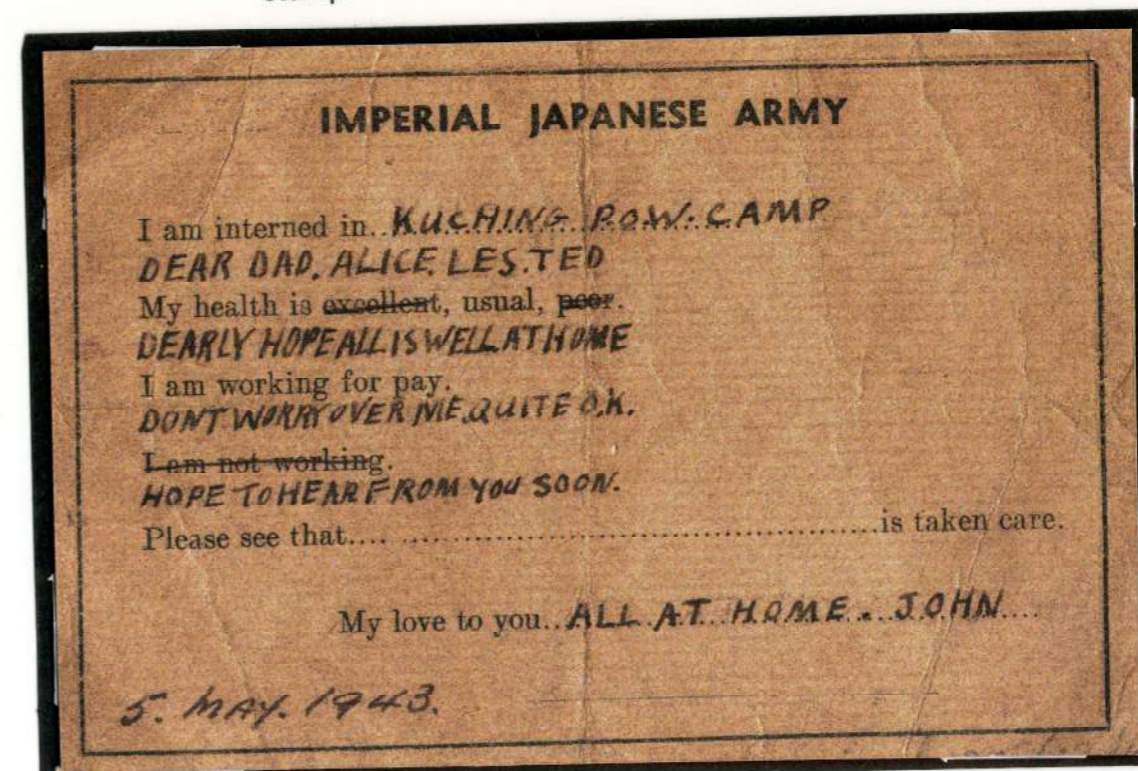 IMPERIAL JAPANESE ARMY
I am interned in..KUCHING P.O.W. CAMP
DEAR DAD. ALICE. LES. TED
My health is excellent, usual, poor.
DEARLY HOPE ALL IS WELL AT HOME
I am working for pay.
DONT WORRY OVER ME. QUITE O.K.
I am not working.
HOPE TO HEAR FROM YOU SOON.
Please see that.... ................................................is taken care.
My love to you..ALL AT HOME. JOHN....
5. MAY. 1943.